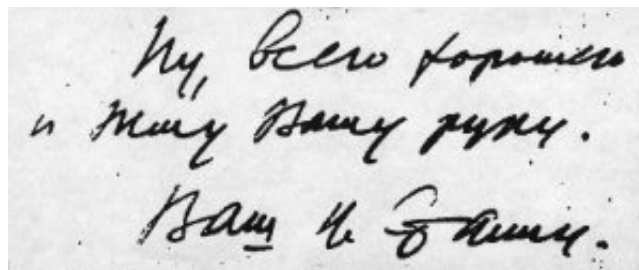 Ну, всего хорошего
и жму Вашу руку.
Ваш И. Сталин.